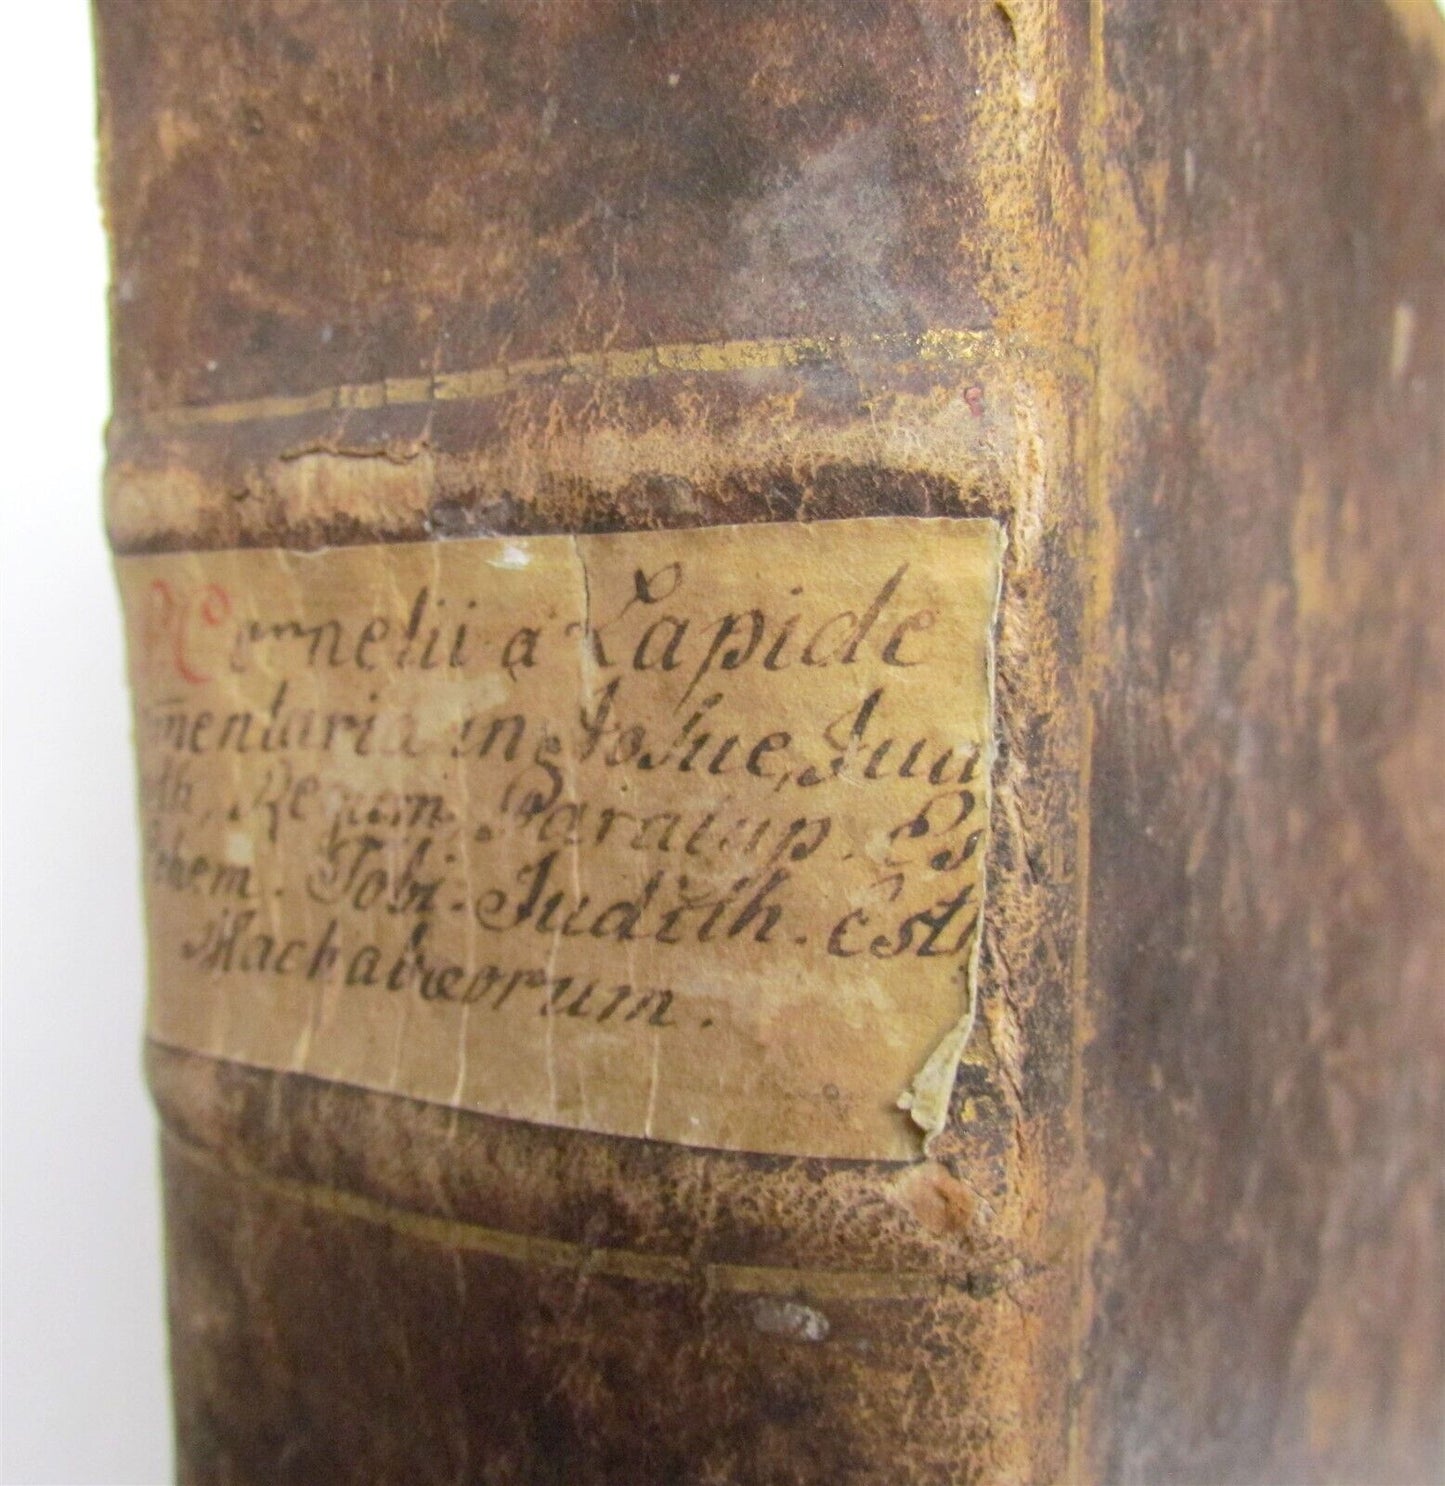 Cornelii a Lapide
om̄mentaria in Josue, Jud
uth, Regum, Paralip. Es
Nehem. Tobi. Judith. Esth
Machabæorum.